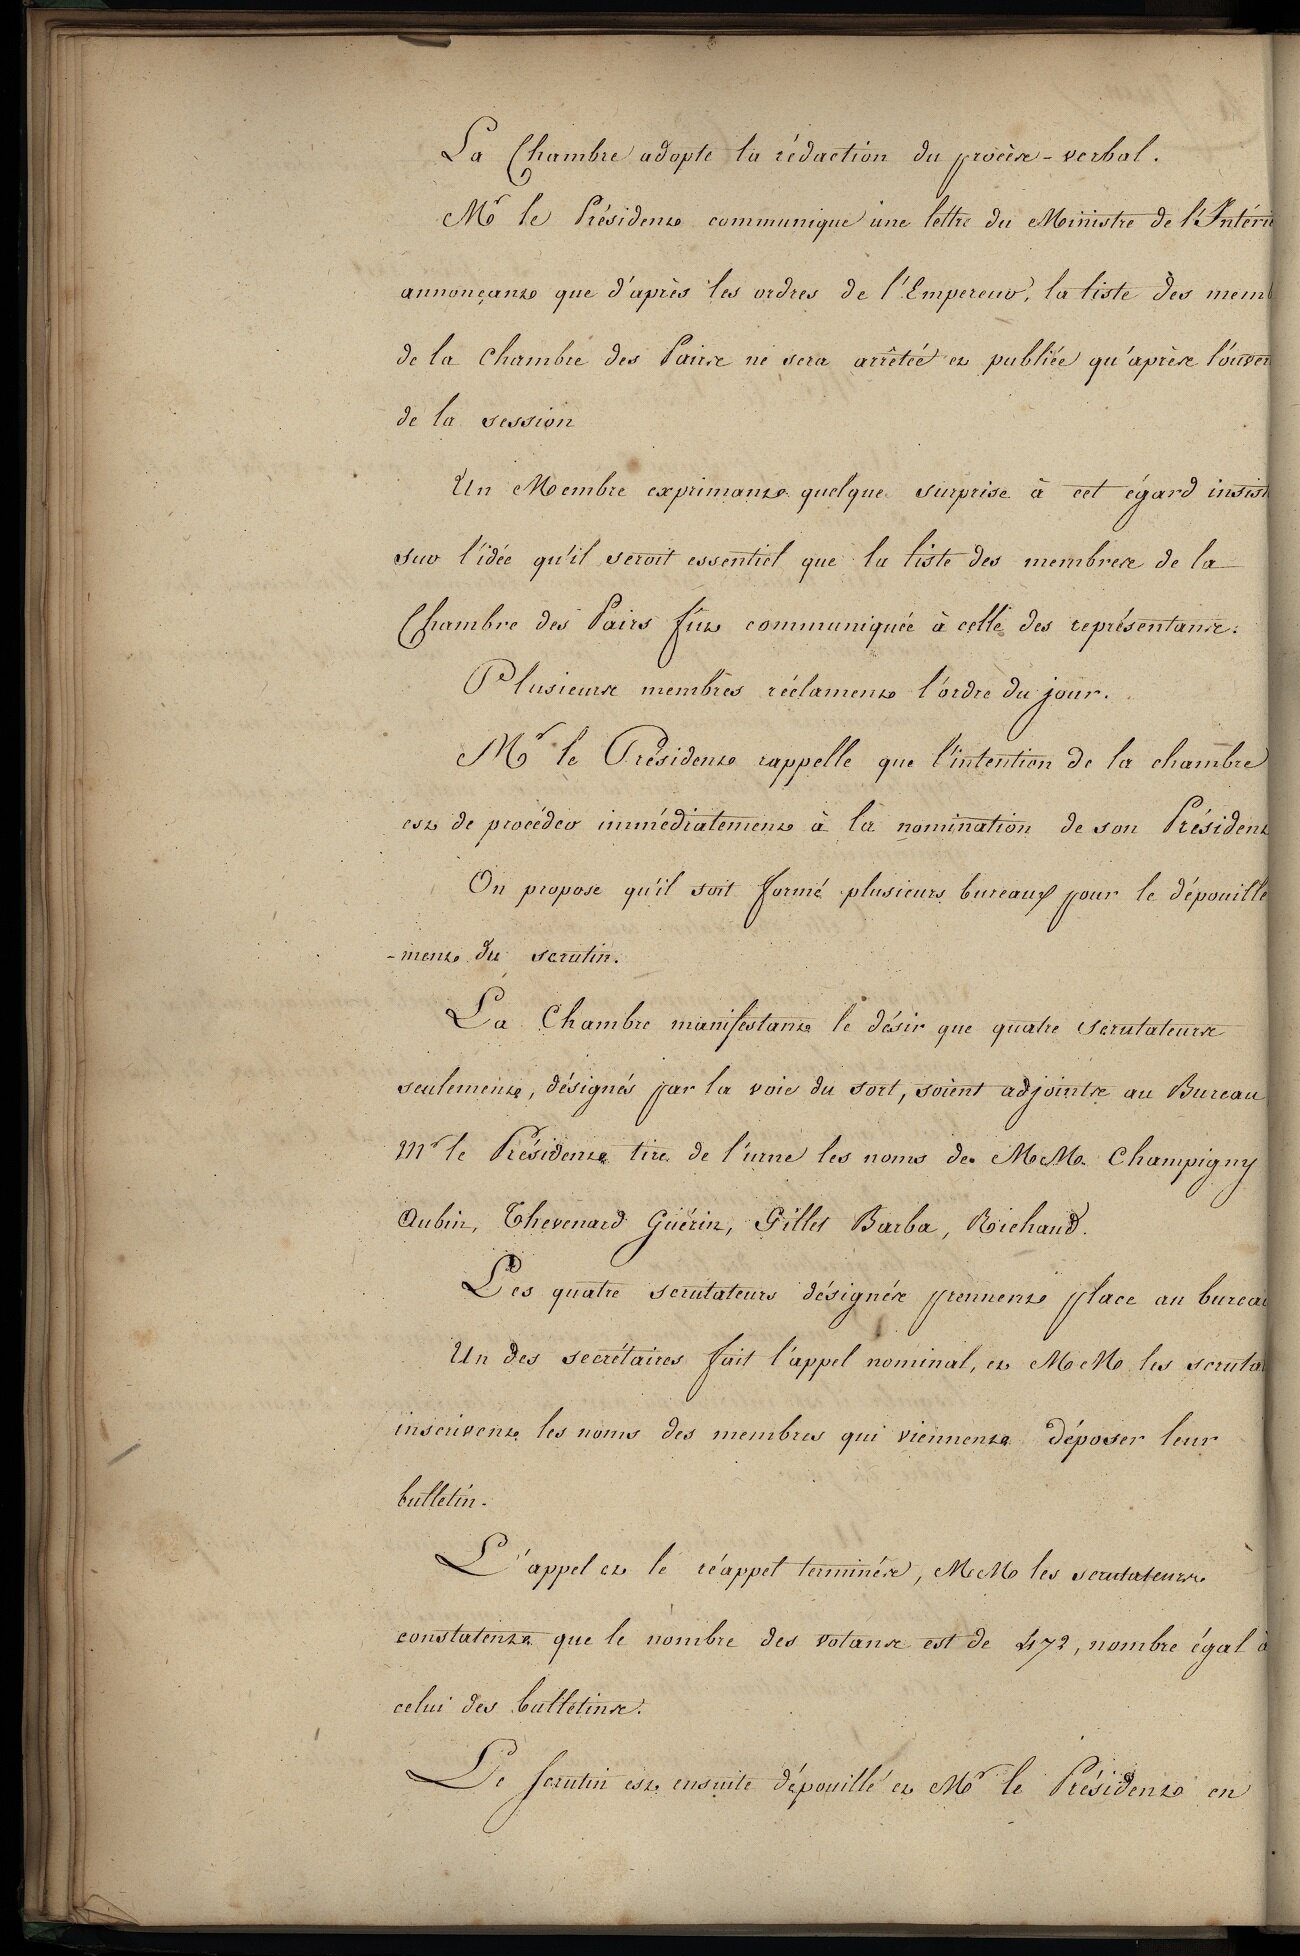 La Chambre adopte la rédaction du procès-verbal.
Mr le Président communique une lettre du Ministre de l'Intérie
annonçant que d'après les ordres de l'Empereur, la liste des memb
de la Chambre des Pairs ne sera arrêtée et publiée qu'après l'ouver
de la session
Un Membre exprimant quelque surprise à cet égard insist
sur l'idée qu'il seroit essentiel que la liste des membres de la
Chambre des Pairs fût communiquée à celle des représentans.
Plusieurs membres réclament l'ordre du jour.
Mr le Président rappelle que l'intention de la chambre
est de procéder immédiatement à la nomination de son Président
On propose qu'il soit formé plusieurs bureaux pour le dépouille
-ment du scrutin.
La Chambre manifestant le désir que quatre scrutateurs
seulement, désignés par la voie du sort, soient adjoints au Bureau
Mr le Président tire de l'urne les noms de MM. Champigny
Aubin, Thevenard Guérin, Gilles Barba, Richaud.
Les quatre scrutateurs désignés prennent place au bureau
Un des secrétaires fait l'appel nominal, et MM les scruta
inscrivent les noms des membres qui viennent déposer leur
bulletin.
L'appel et le réappel terminés, MM les scrutateurs
constatent que le nombre des votans est de 472, nombre égal à
celui des bulletins.
Le scrutin est ensuite dépouillé et Mr le Président en